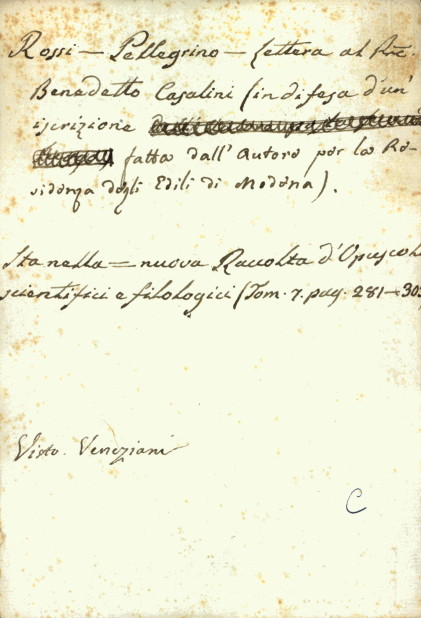 Rossi — Pellegrino — Lettera al
Benedetto Casalini (in difesa d'un'
iscrizione
fatta dall'Autore per la Re-
sidenza degli Edili di Modena).
Sta nella = nuova Raccolta d'Opuscoli
scientifici e filologici (Tom. 7. pag. 281-303
Visto. Veneziani
C